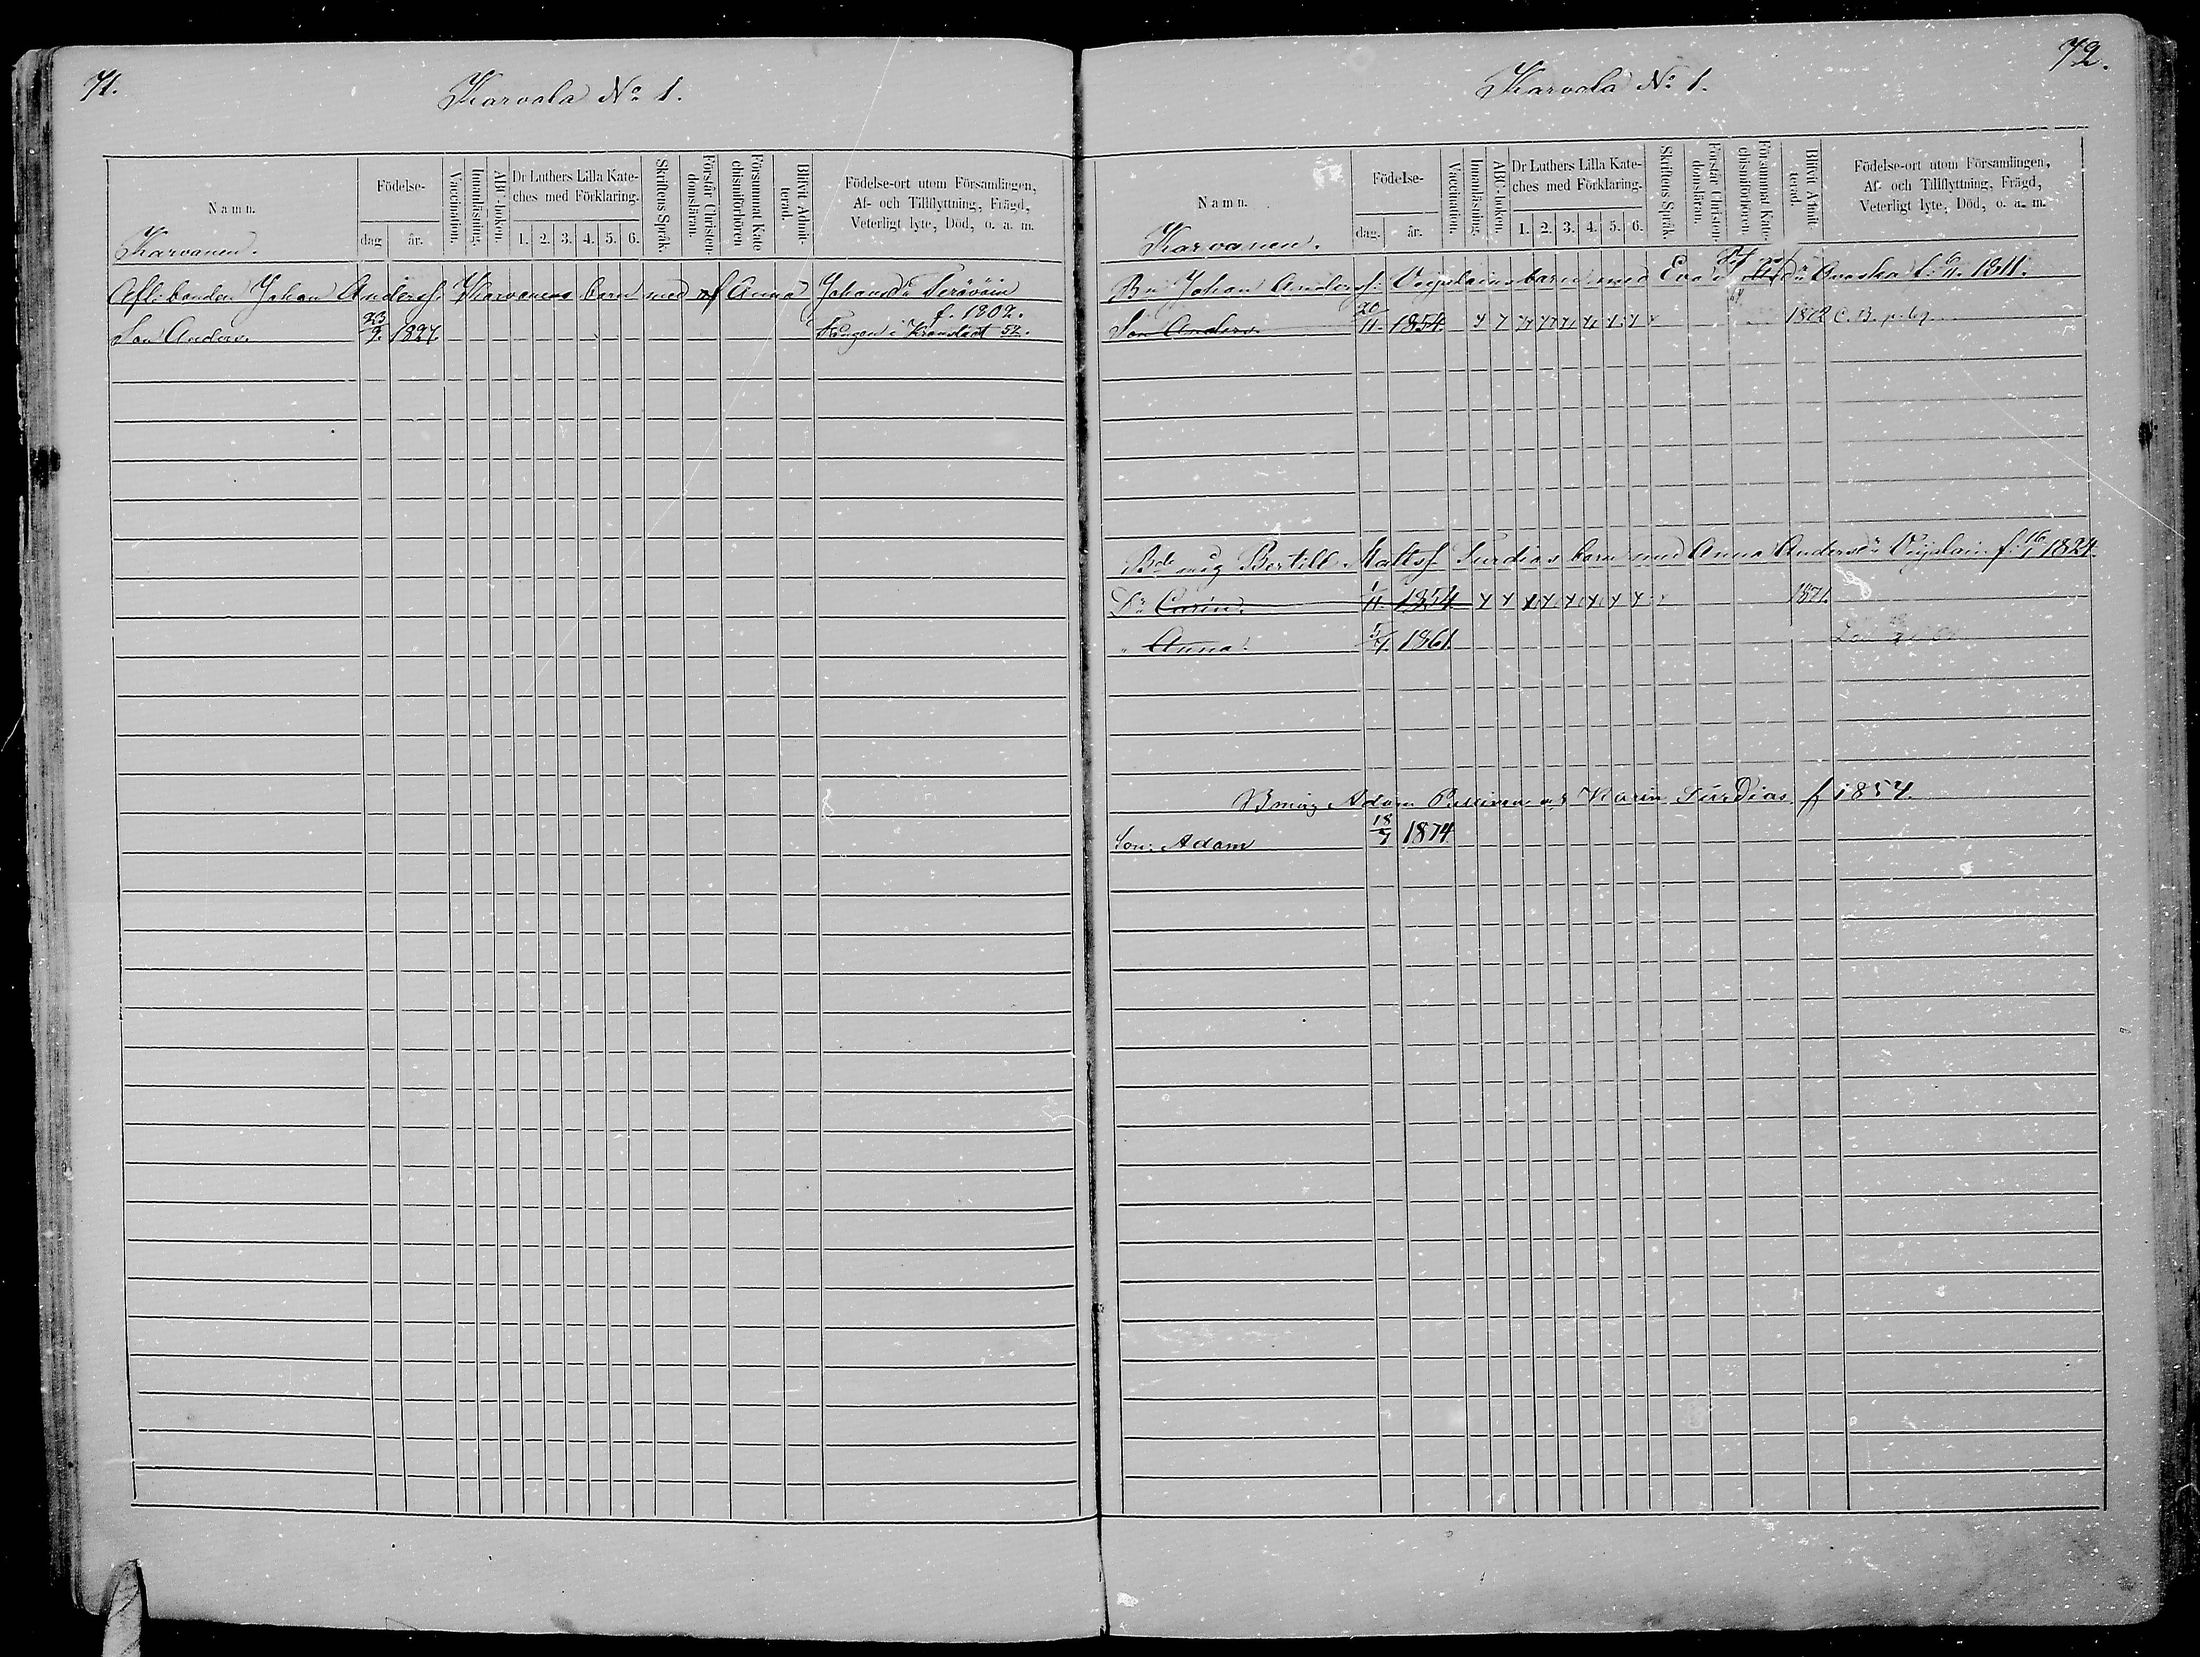 71.
Karvala No 1.
Namn.
Födelse-
dag
år.
Vaccination.
Innanläsning.
ABC-boken.
Dr Luthers Lilla Kate-
ches med Förklaring.
1. 2. 3. 4. 5. 6.
Skriftens Språk.
Förstår Christen-
domsläran.
Försummat Kate
chismiförhören
Blivit Admit-
terad.
Födelse-ort utom Församlingen,
Af- och Tillflyttning, Frägd,
Veterligt lyte, Död, o. a. m.
Karvanen.
Afl: bonden Johan Anderss: Karvanens barn med Anna Johansdr Terävöin
f. 1802.
Son Anders. 23/9. 1827. Fången i Kronstadt 52.
72.
Karvala No 1.
Namn.
Födelse-
dag.
år.
Vaccination.
Innanläsning.
ABC-boken.
Dr Luthers Lilla Kate-
ches med Förklaring.
1. 2. 3. 4. 5. 6.
Skriftens Språk.
Förstår Christen-
domsläran.
Försummat Kate-
chismiförhören.
Blivit Admit-
terad.
Födelse-ort utom Församlingen,
Af- och Tillflyttning, Frägd,
Veterligt lyte, Död, o. a. m.
Karvanen.
Bn: Johan Anderss: Veijalains barn med Eva dr Avaska f. 1811.
Son Anders. 20/11. 1854. 1872 C. B. p. 69
Bertill Mattss. Surdias barn med Anna Andersdr Veijalain f. 16/1 1824.
Dr Carin. 1/11. 1854 1871.
" Anna. 1861.
Adam Karin Surdias f 1854.
Son: Adam 18/7 1874